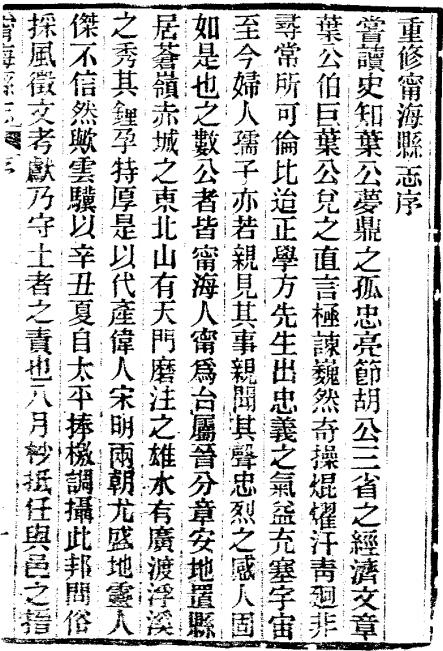 重修甯海縣志序
嘗讀史知葉公夢鼎之孤忠亮節胡公三省之經濟文章
葉公伯巨葉公兌之直言極諫巍然奇操焜燿汗靑迥非
尋常所可倫比迨正學方先生出忠義之氣益充塞宇宙
至今婦人孺子亦若親見其事親聞其聲忠烈之感人固
如是也之數公者皆甯海人甯爲台屬晉分章安地置縣
居蒼嶺赤城之東北山有天門磨注之雄水有廣渡浮溪
之秀其鍾孕特厚是以代產偉人宋明兩朝尤盛地靈人
傑不信然歟雲驤以辛丑夏自太平捧檄調攝此邦問俗
採風徵文考獻乃守土者之責也八月杪抵任與邑之指
甯海縣志 序